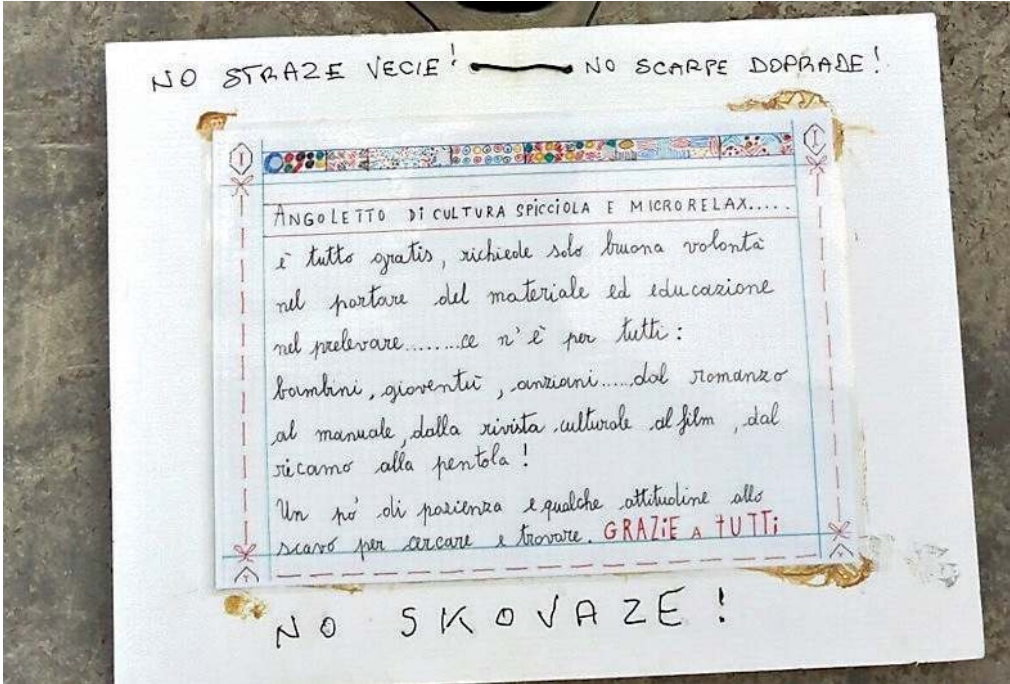 NO STRAZE VECIE! NO SCARPE DOPRADE!
ANGOLETTO DI CULTURA SPICCIOLA E MICRORELAX.....
è tutto gratis, richiede solo buona volontà
nel portare del materiale ed educazione
nel prelevare........ce n'è per tutti:
bambini, gioventù, anziani.....dal romanzo
al manuale, dalla rivista culturale al film, dal
ricamo alla pentola!
Un pò di pazienza e qualche attitudine allo
scavo per cercare e trovare. GRAZiE A TUTTi
NO SKOVAZE!